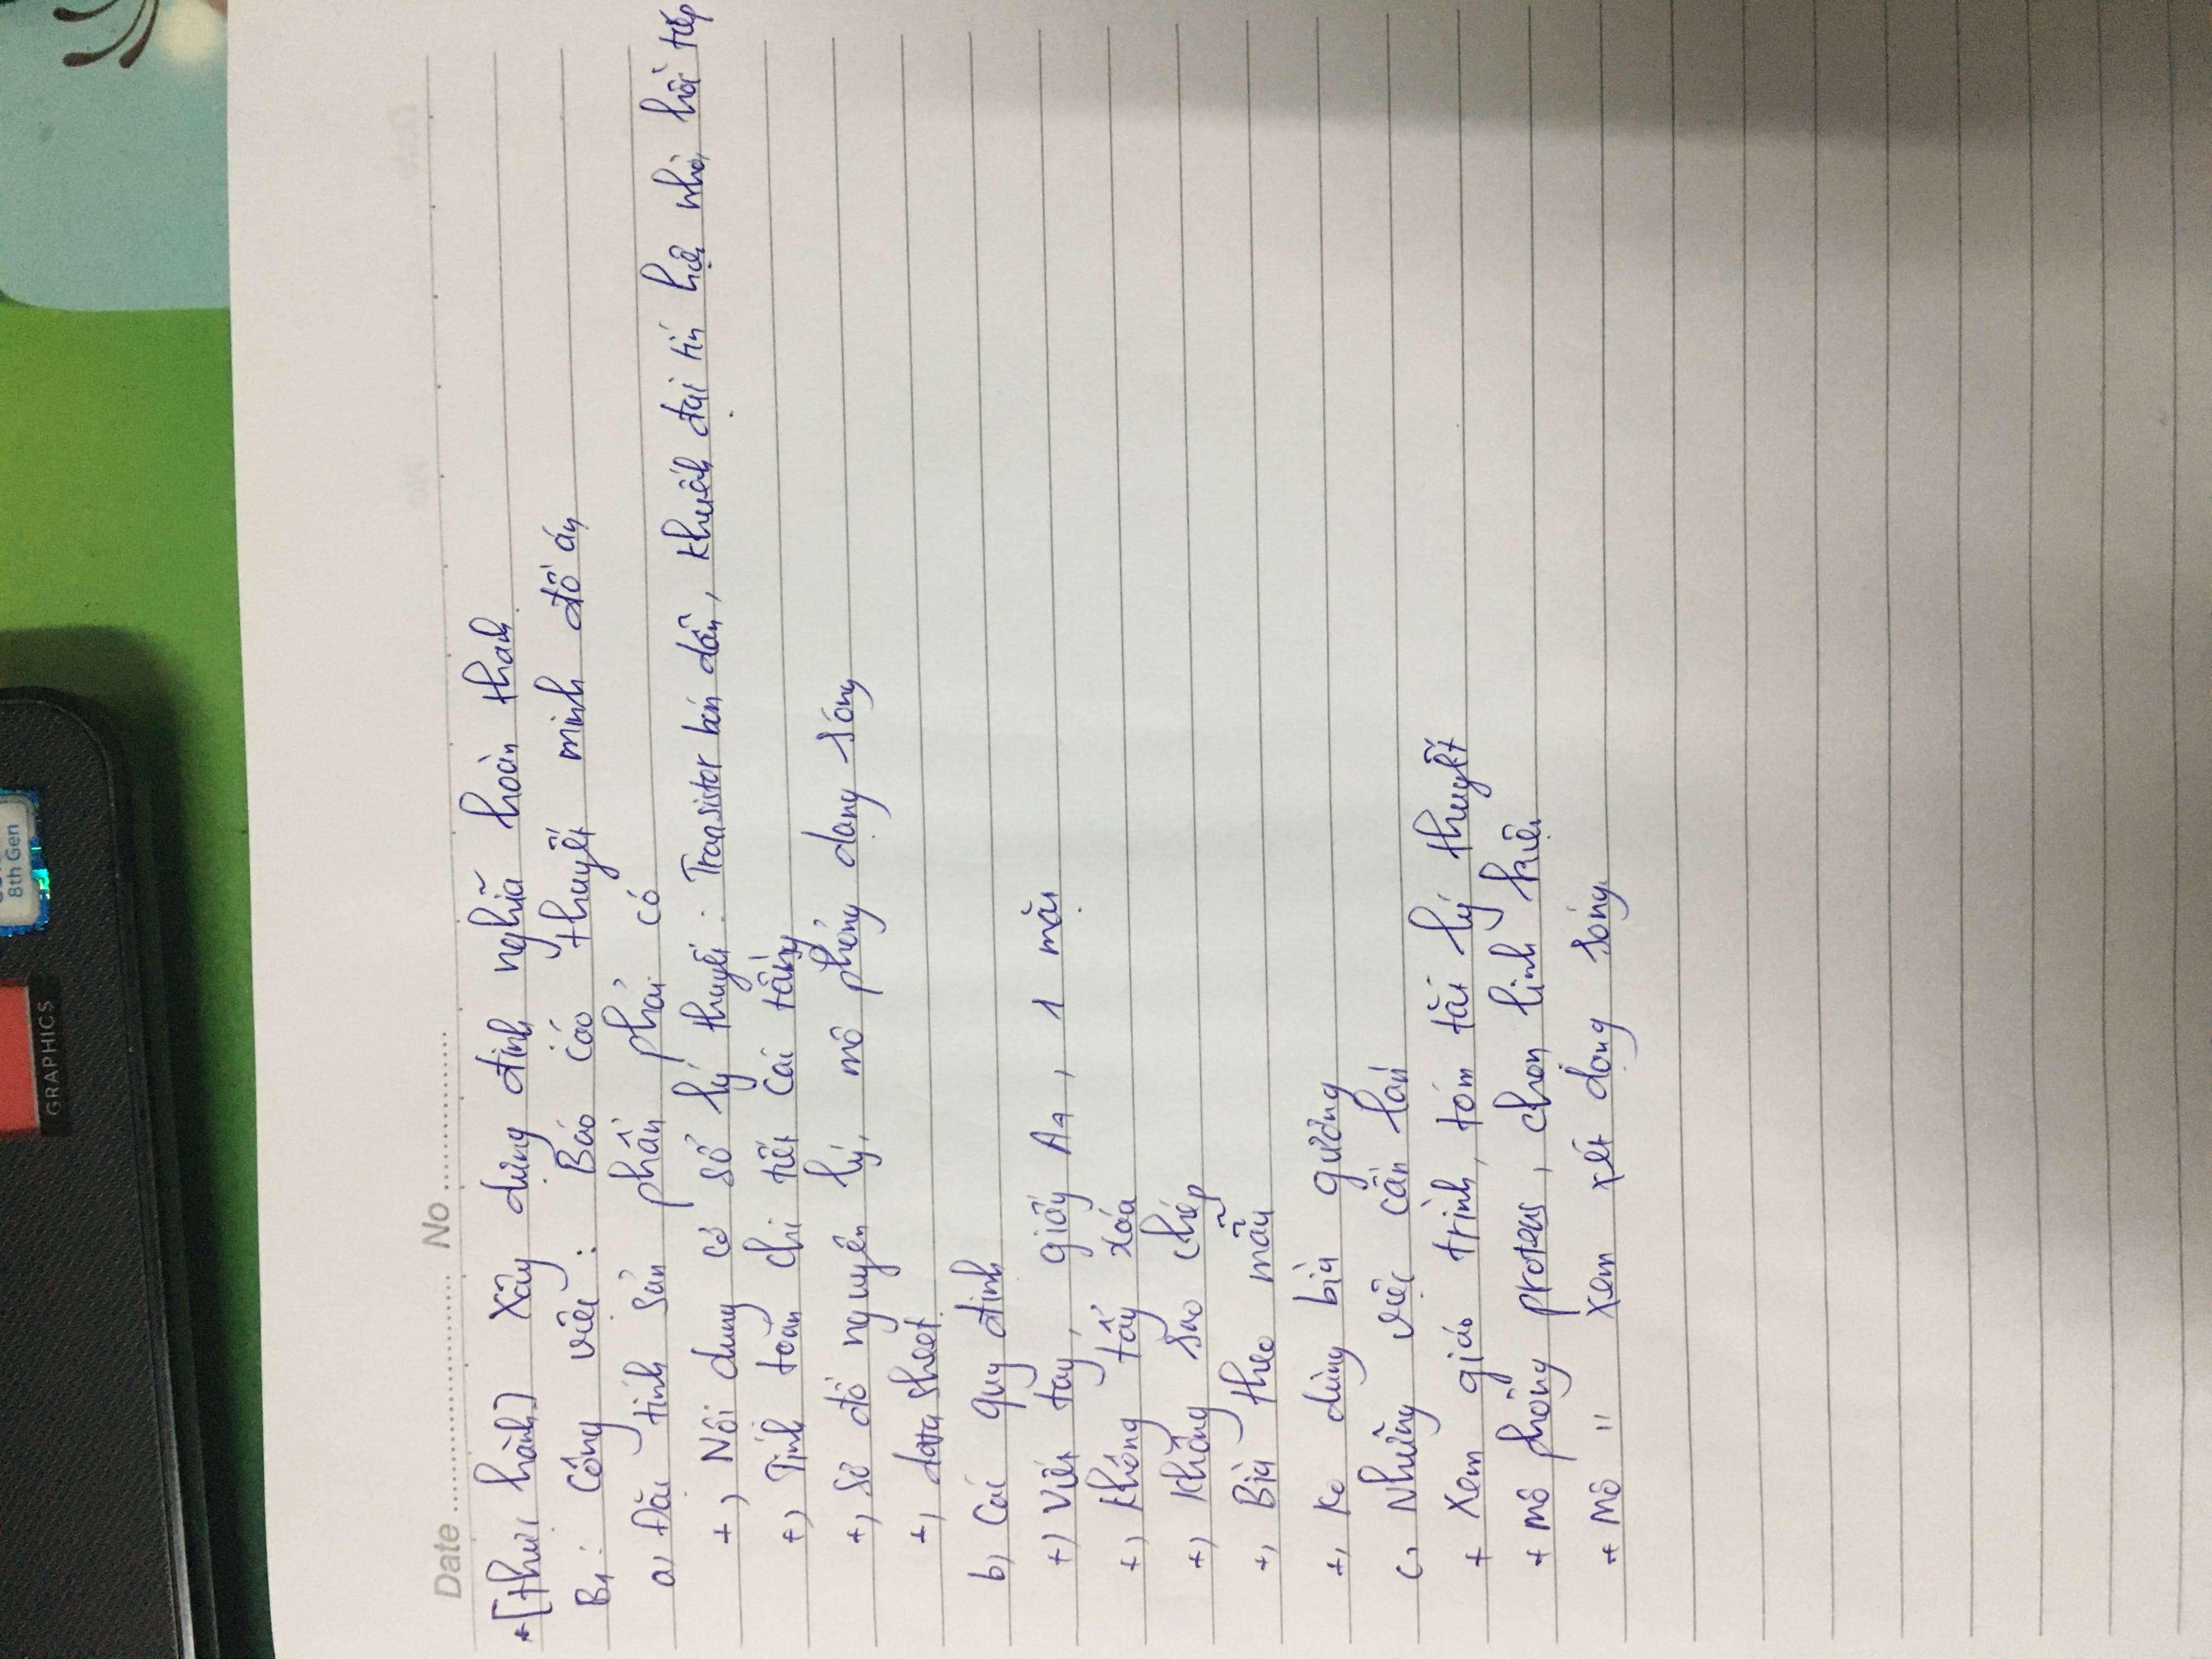 GRAPHICS
8th Gen
Date ........................ No ................
*[Thực hành] Xây dựng định nghĩa hoàn thành.
B1: Công việc : Báo cáo thuyết minh đồ án
a, Đặc tính sản phẩm phải có
+, Nội dung cơ sở lý thuyết : Transistor bán dẫn, khuếch đại tín hiệu nhỏ, hồi tiếp
+) Tính toán chi tiết các tầng
+, Sơ đồ nguyên lý, mô phỏng dạng sóng
+, datasheet.
b, Các quy định
+) Viết tay, giấy A4, 1 mặt
+, Không tẩy xóa
+, Không sao chép
+, Bìa theo mẫu
+, Ko dùng bìa gương
c, Những việc cần làm
+ Xem giáo trình, tóm tắt lý thuyết
+ mô phỏng proteus, chọn linh kiện
+ Mô " xem xét dạng sóng.